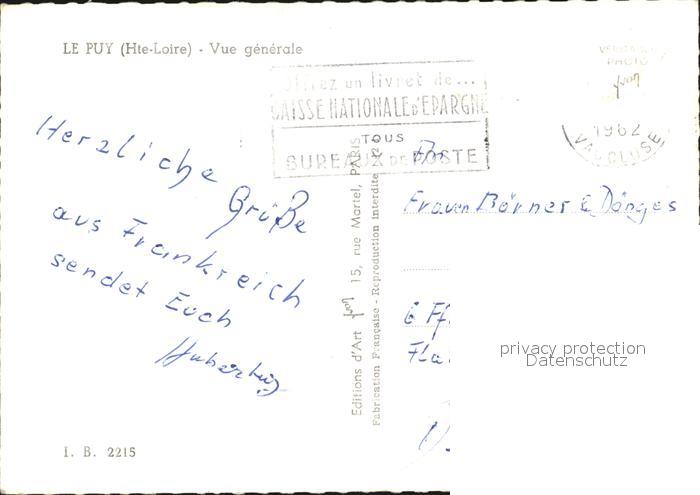 LE PUY (Hte-Loire) - Vue générale
Offrez un livret de...
CAISSE NATIONALE D'EPARGNE
TOUS
BUREAUX DE POSTE
VERITABLE
PHOTO
yvon
1962
VAUCLUSE
Herzliche
Grüße
aus Frankreich
sendet Euch
Hubertus
Editions d'Art yvon 15, rue Martel, PARIS
Fabrication Française - Reproduction interdite
An
Frauen Börner & Dönges
6 Ff.
Fla
privacy protection
Datenschutz
I. B. 2215